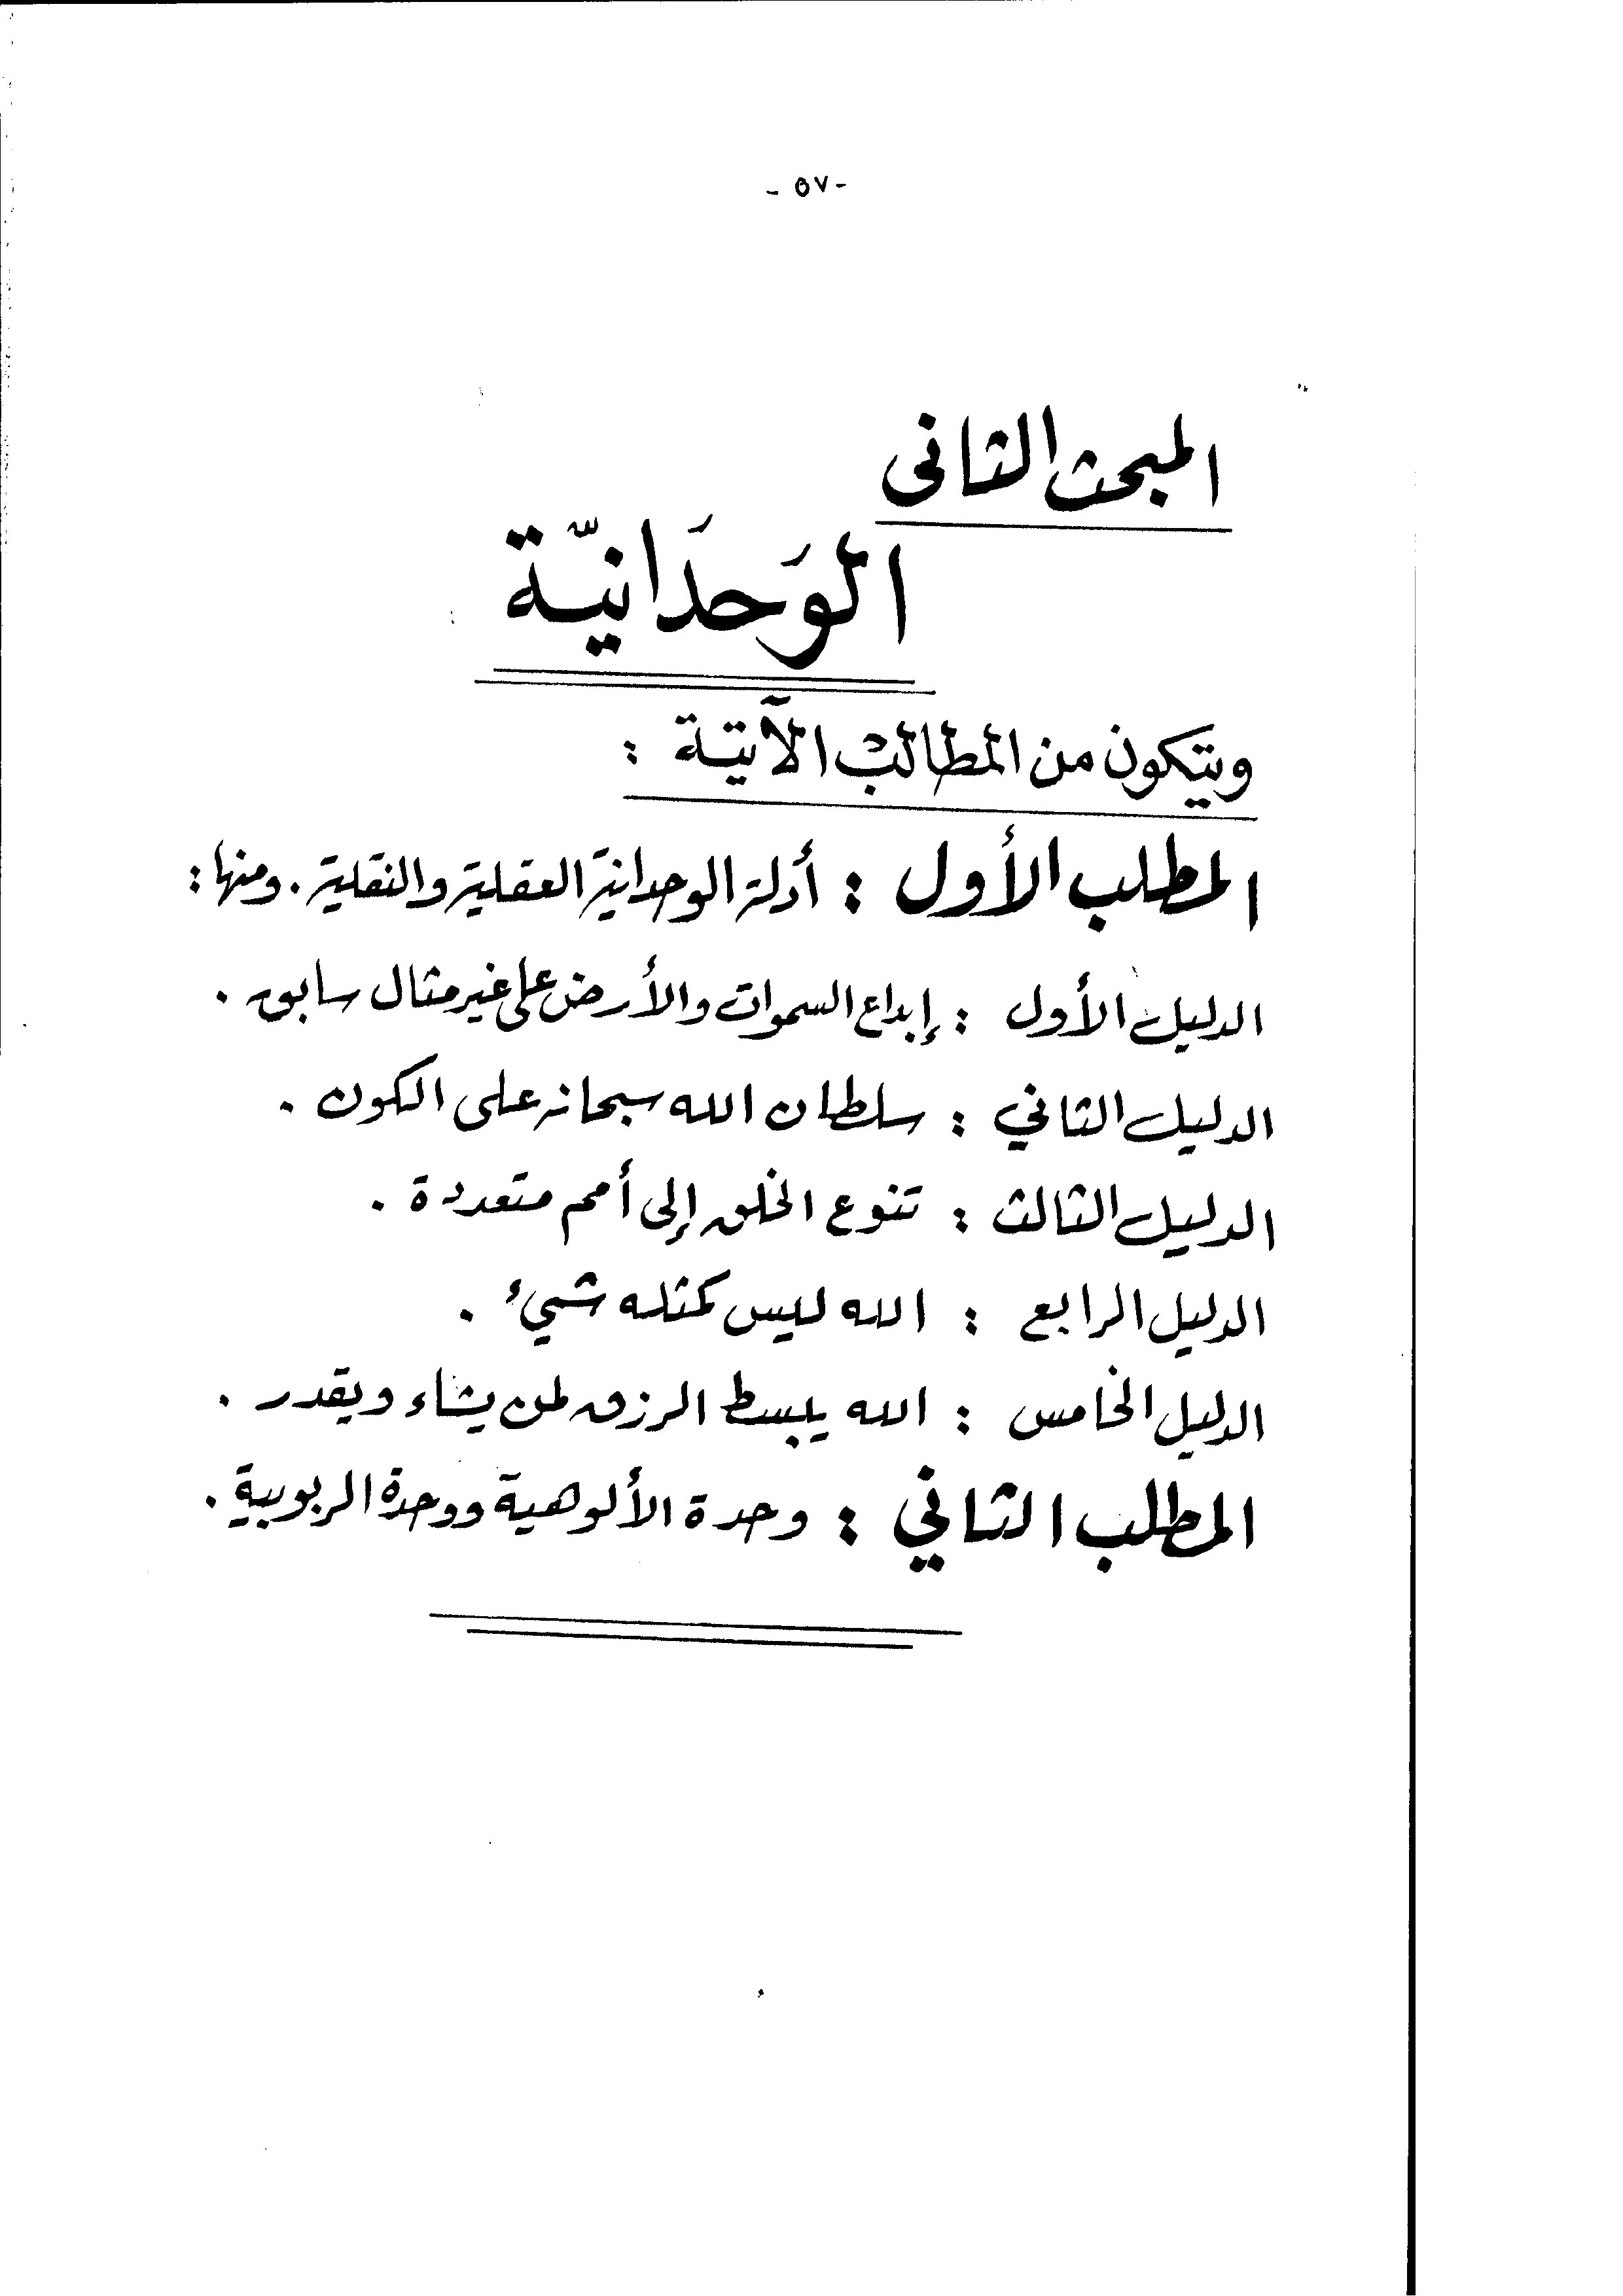 - ٥٧ -
المبحث الثانى
الوَحدَانيّة
ويتكون من المطالب الآتية :
المطلب الأول : أدلة الوحدانية العقلية والنقلية . ومنها :
الدليل الأول : إبداع السموات والأرض على غير مثال سابق .
الدليل الثاني : سلطان الله سبحانه على الكون .
الدليل الثالث : تنوع الخلق إلى أمم متعددة .
الدليل الرابع : الله ليس كمثله شيء .
الدليل الخامس : الله يبسط الرزق لمن يشاء ويقدر .
المطلب الثاني : وحدة الألوهية ووحدة الربوبية .